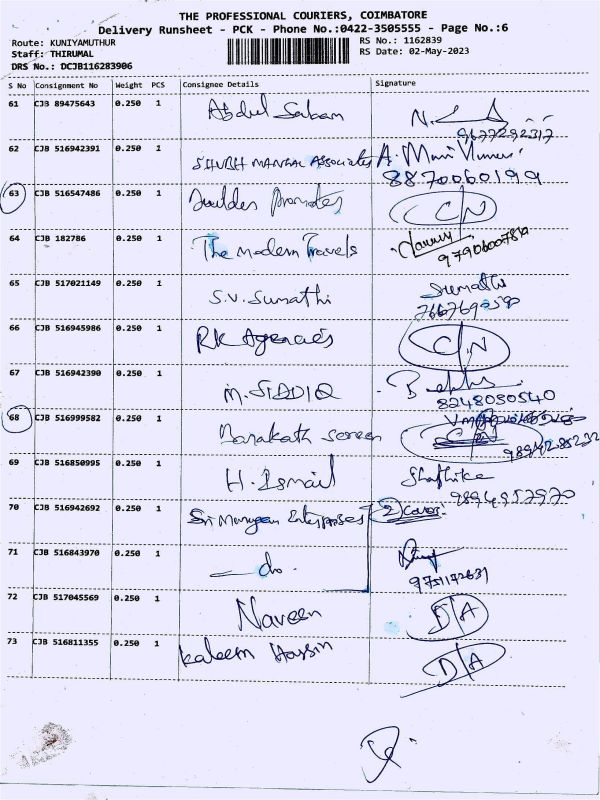 THE PROFESSIONAL COURIERS, COIMBATORE
Delivery Runsheet - PCK - Phone No.:0422-3505555 - Page No.:6
Route: KUNIYAMUTHUR RS No.: 1162839
Staff: THIRUMAL RS Date: 02-May-2023
DRS No.: DCJB116283906
S No Consignment No Weight PCS Consignee Details Signature
61 CJB 89475643 0.250 1 Abdul Salam
9677292317
62 CJB 516942391 0.250 1 SHUBH MANGAL Associates A. Mani Kumar
8870060199
63 CJB 516547486 0.250 1 Builder Promotes C/N
64 CJB 182786 0.250 1 The modern Travels
65 CJB 517021149 0.250 1 S.V. Sumathi Sumathi
66 CJB 516945986 0.250 1 RK Agencies C/N
67 CJB 516942390 0.250 1 M. SIDDIQ
8248050540
68 CJB 516999582 0.250 1 Barakath screen
9894285232
69 CJB 516850995 0.250 1 H. Ismail Shafhika
9894957570
70 CJB 516942692 0.250 1 Sri Murugan Enterprises 2 Cover
71 CJB 516843970 0.250 1 — do.
9751172631
72 CJB 517045569 0.250 1 Naveen D/A
73 CJB 516811355 0.250 1 kaleem Hossin D/A